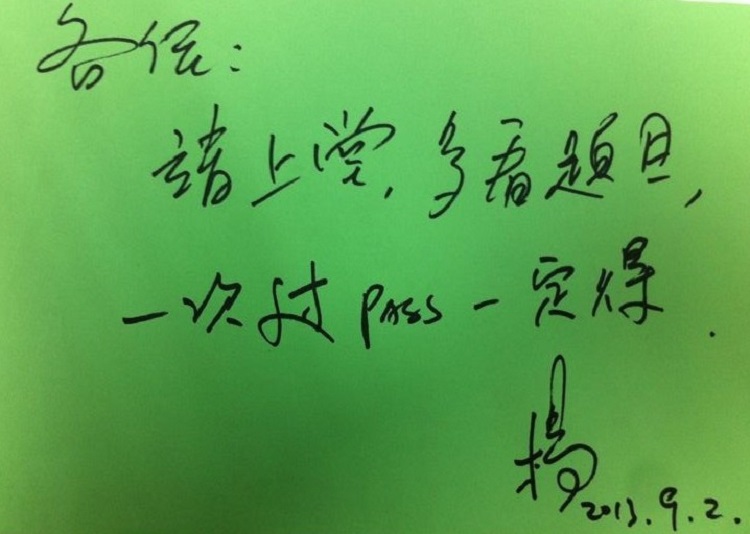 各位:
請上堂,多看題目,
一次过 PASS 一定得.
楊
2013.9.2.